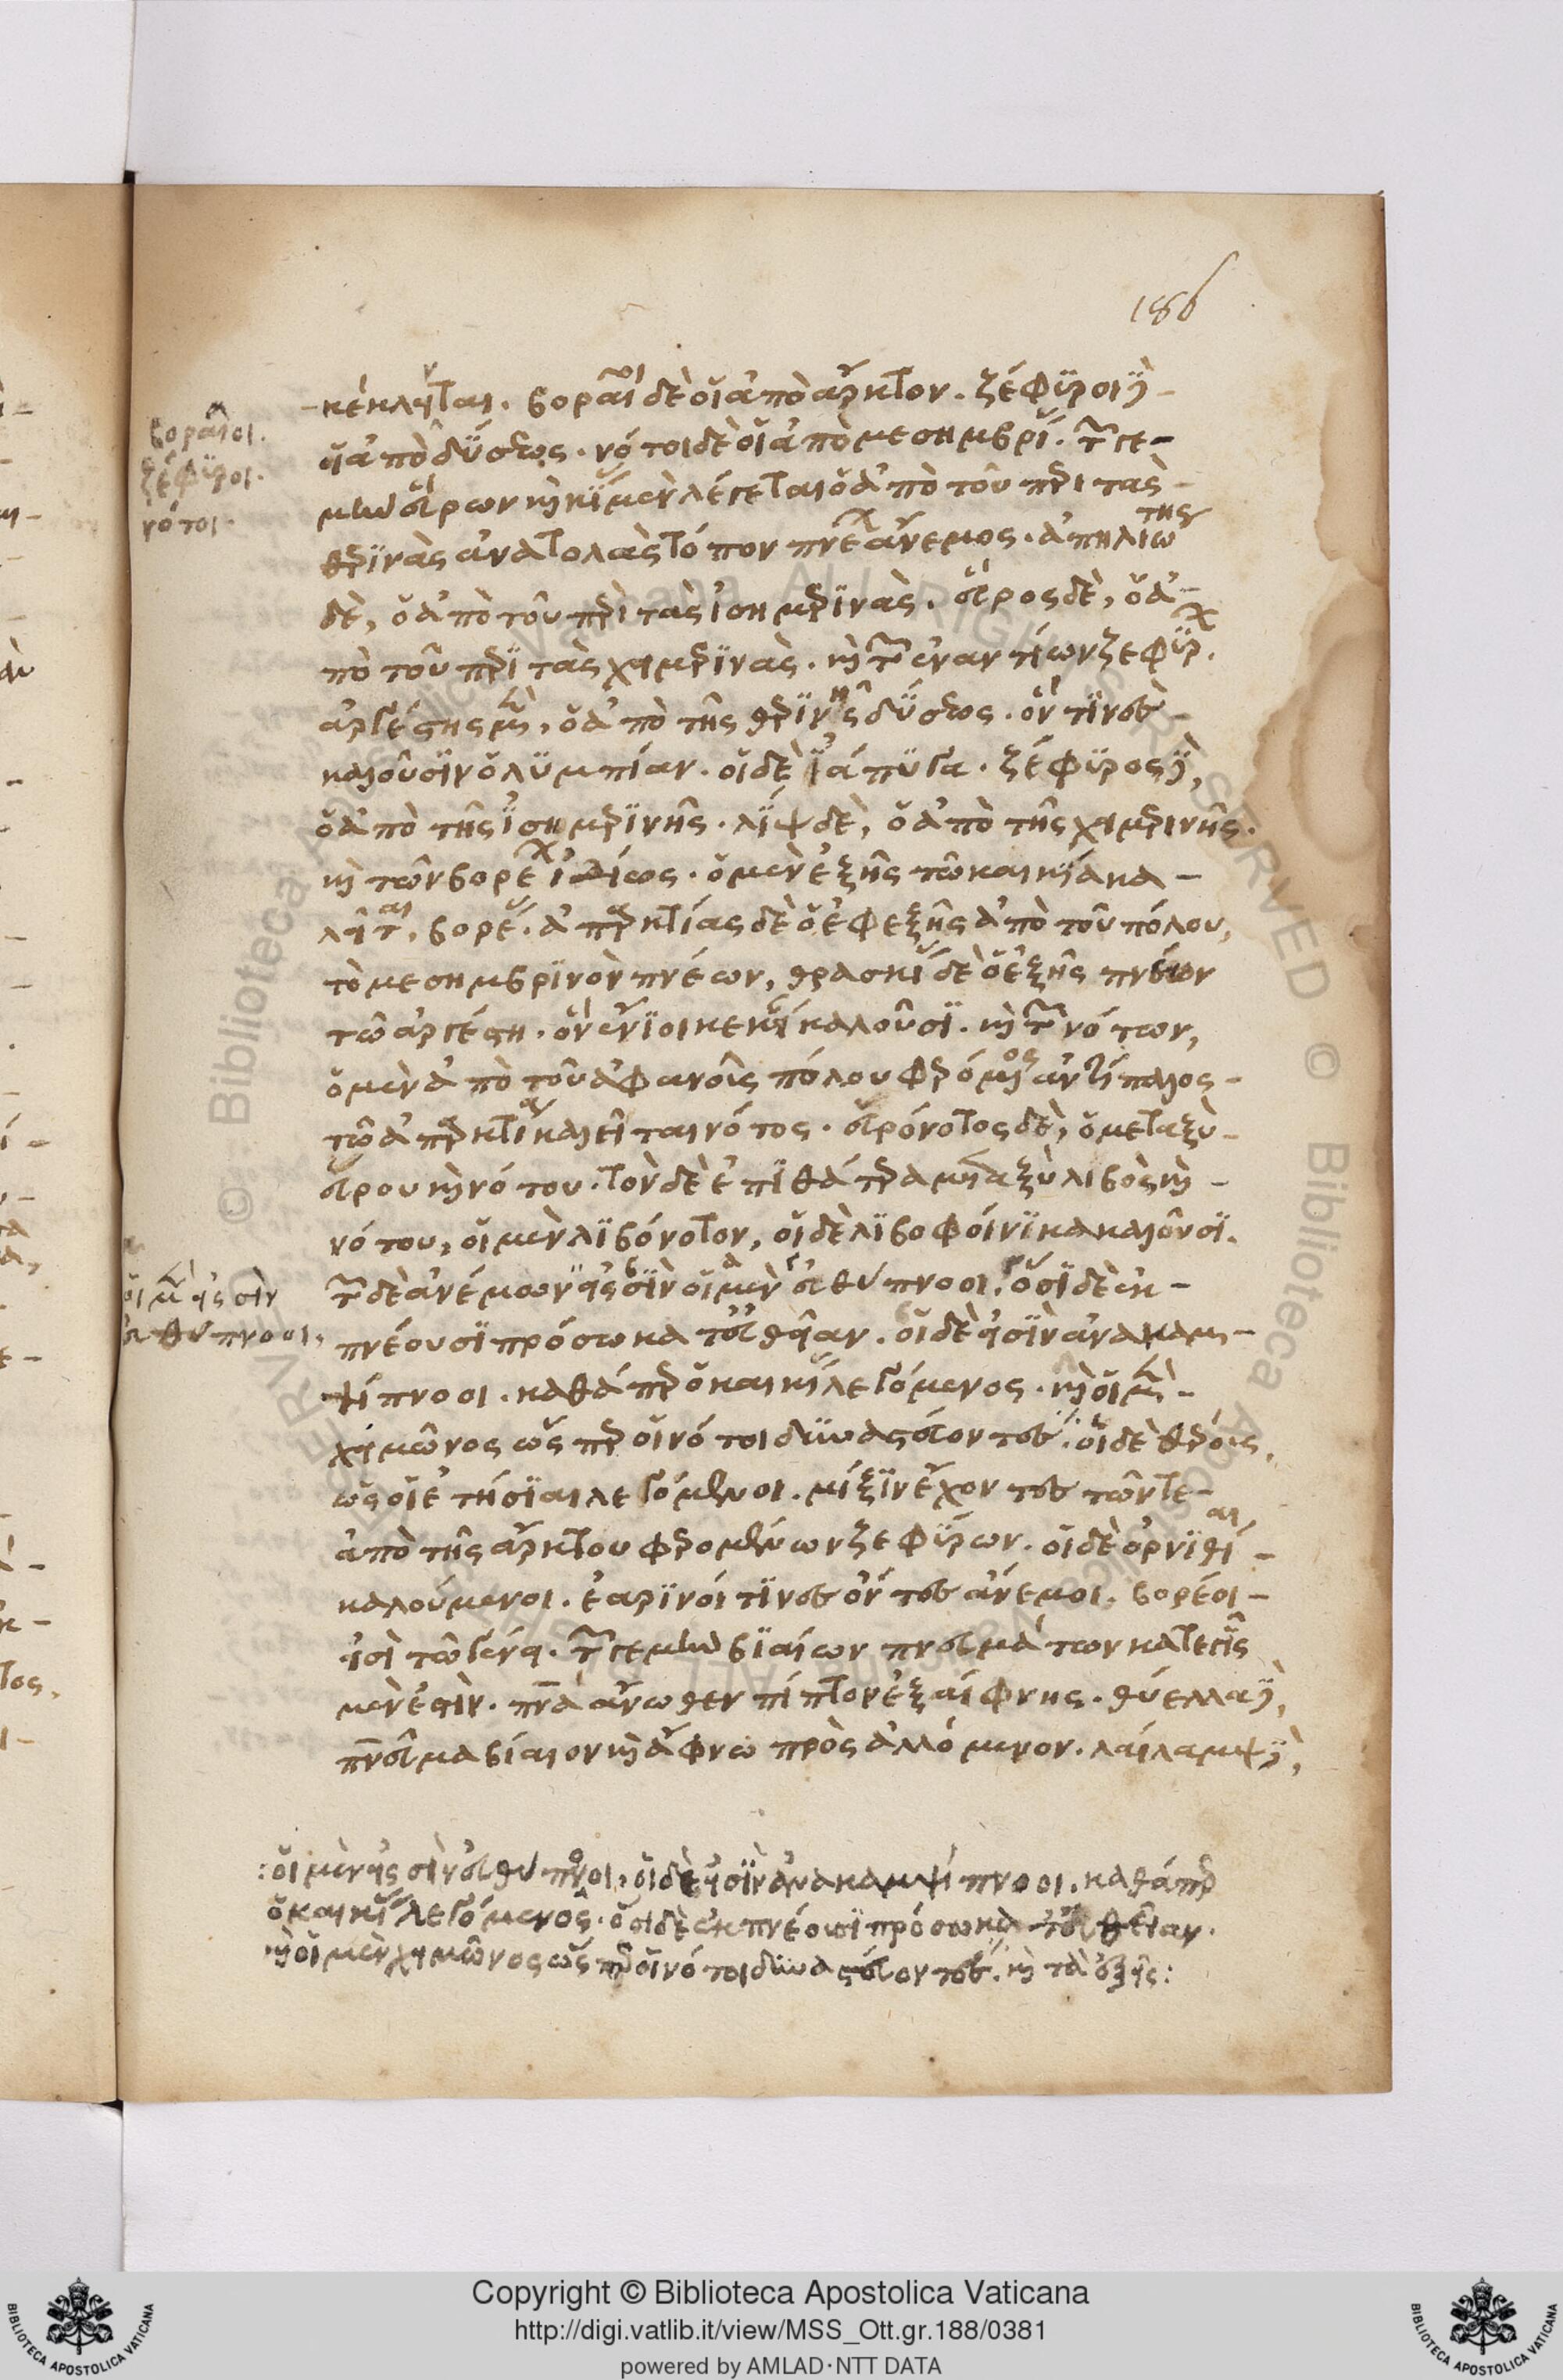 186
βοραῖοι.
ζέφϋροι.
νότοι.
κέκληνται. βορέαι δὲ οἱ ἀπὸ ἄρκτον. ζέφϋροι δὲ
οἱ ἀπὸ δύσεως. νότοι δὲ οἱ ἀπὸ μεσημβρί. τῶν γε
μὴν εὔρων καικί μὲν λέγεται ὁ ἀπὸ τοῦ περὶ τὰς
θερϊνὰς ἀνατολὰς τόπον πνέ ἄνεμος. ἀπηλιώτης
δὲ, ὁ ἀπὸ τοῦ περὶ τὰς ἰσημερϊνὰς. εὖρος δὲ, ὁ ἀ-
πὸ τοῦ περὶ τὰς χειμερϊνὰς. καὶ τῶν ἐναντίων ζεφύρ.
ἀργέστης μὲν, ὁ ἀπὸ τῆς θερϊνῆς δύσεως. ὅν τϊνες
καλοῦσϊν ὀλϋμπίαν. οἱ δὲ ἰάπϋγα. ζέφϋρος δὲ,
ὁ ἀπὸ τῆς ἰσημερϊνῆς. λὶψ δὲ, ὁ ἀπὸ τῆς χειμερινῆς.
καὶ τῶν βορέ ἰδίως. ὁ μὲν ἑξῆς τῶ καικία κα-
λεῖται, βορέ. ἀπαρκτίας δὲ ὁ ἐφεξῆς ἀπὸ τοῦ πόλου,
τὸ μεσημβρϊνὸν πνέων, θρασκί δὲ ὁ ἑξῆς πνέων
τῶ ἀργέστη. ὃν ἔνϊοι κεκί καλοῦσϊ. καὶ τῶν νότων,
ὁ μὲν ἀπὸ τοῦ ἀφανοῖς πόλου φερόμενος ἀντίπαλος
τῶ ἀπαρκτία καλεῖται νότος. εὐρόνοτος δὲ, ὁ μεταξὺ
εὔρου καὶ νότου. τὸν δὲ ἐπὶ θάτερα μεταξὺ λιβὸς καὶ
νότου, οἱ μὲν λϊβόνοτον, οἱ δὲ λϊβοφοίνϊκα καλοῦσϊ.
οἱ μὲν εἰσὶν
εὐθύπνοοι,
τῶν δὲ ἀνέμων εἰσϊν οἱ μὲν εὐθύπνοοι. ὅσϊ δὲ ἐκ-
πνέουσϊ πρόσω κατ' εὐθεῖαν. οἱ δὲ εἰσϊν ἀνακαμ-
ψίπνοοι. καθάπερ ὁ καικί λεγόμενος. καὶ οἱ μὲν
χειμῶνος ὥσπερ οἱ νότοι δϋναστεύοντες. οἱ δὲ θέρους,
ὡς οἱ ἐτησίαι λεγόμενοι. μίξϊν ἔχοντες τῶν τε
ἀπὸ τῆς ἄρκτου φερομένων ζεφύρων. οἱ δὲ ὀρνιθίαι
καλούμενοι. ἐαρϊνοί τϊνες ὄντες ἄνεμοι. βορέοι
εἰσὶ τῶ γένει. τῶν γε μὴν βϊαίων πνευμάτων καταιγὶς
μὲν ἐστὶν. πνεῦμα ἄνωθεν πίπτον ἐξαίφνης. θύελλα δὲ,
πνεῦμα βίαιον καὶ ἄφνω προσαλλόμενον. λαίλαμψ δὲ,
:οἱ μὲν εἰσὶν εὐθύπνοοι, οἱ δὲ εἰσὶν ἀνακαμψίπνοοι. καθάπερ
ὁ καικί λεγόμενος. ὅσι δὲ ἐκπνέουσι πρόσω κατ' εὐθεῖαν.
καὶ οἱ μὲν χειμῶνος ὥσπερ οἱ νότοι δϋναστεύοντες. καὶ τὰ ἑξῆς:
Copyright © Biblioteca Apostolica Vaticana
http://digi.vatlib.it/view/MSS_Ott.gr.188/0381
powered by AMLAD·NTT DATA
BIBLIOTECA APOSTOLICA VATICANA
BIBLIOTECA APOSTOLICA VATICANA